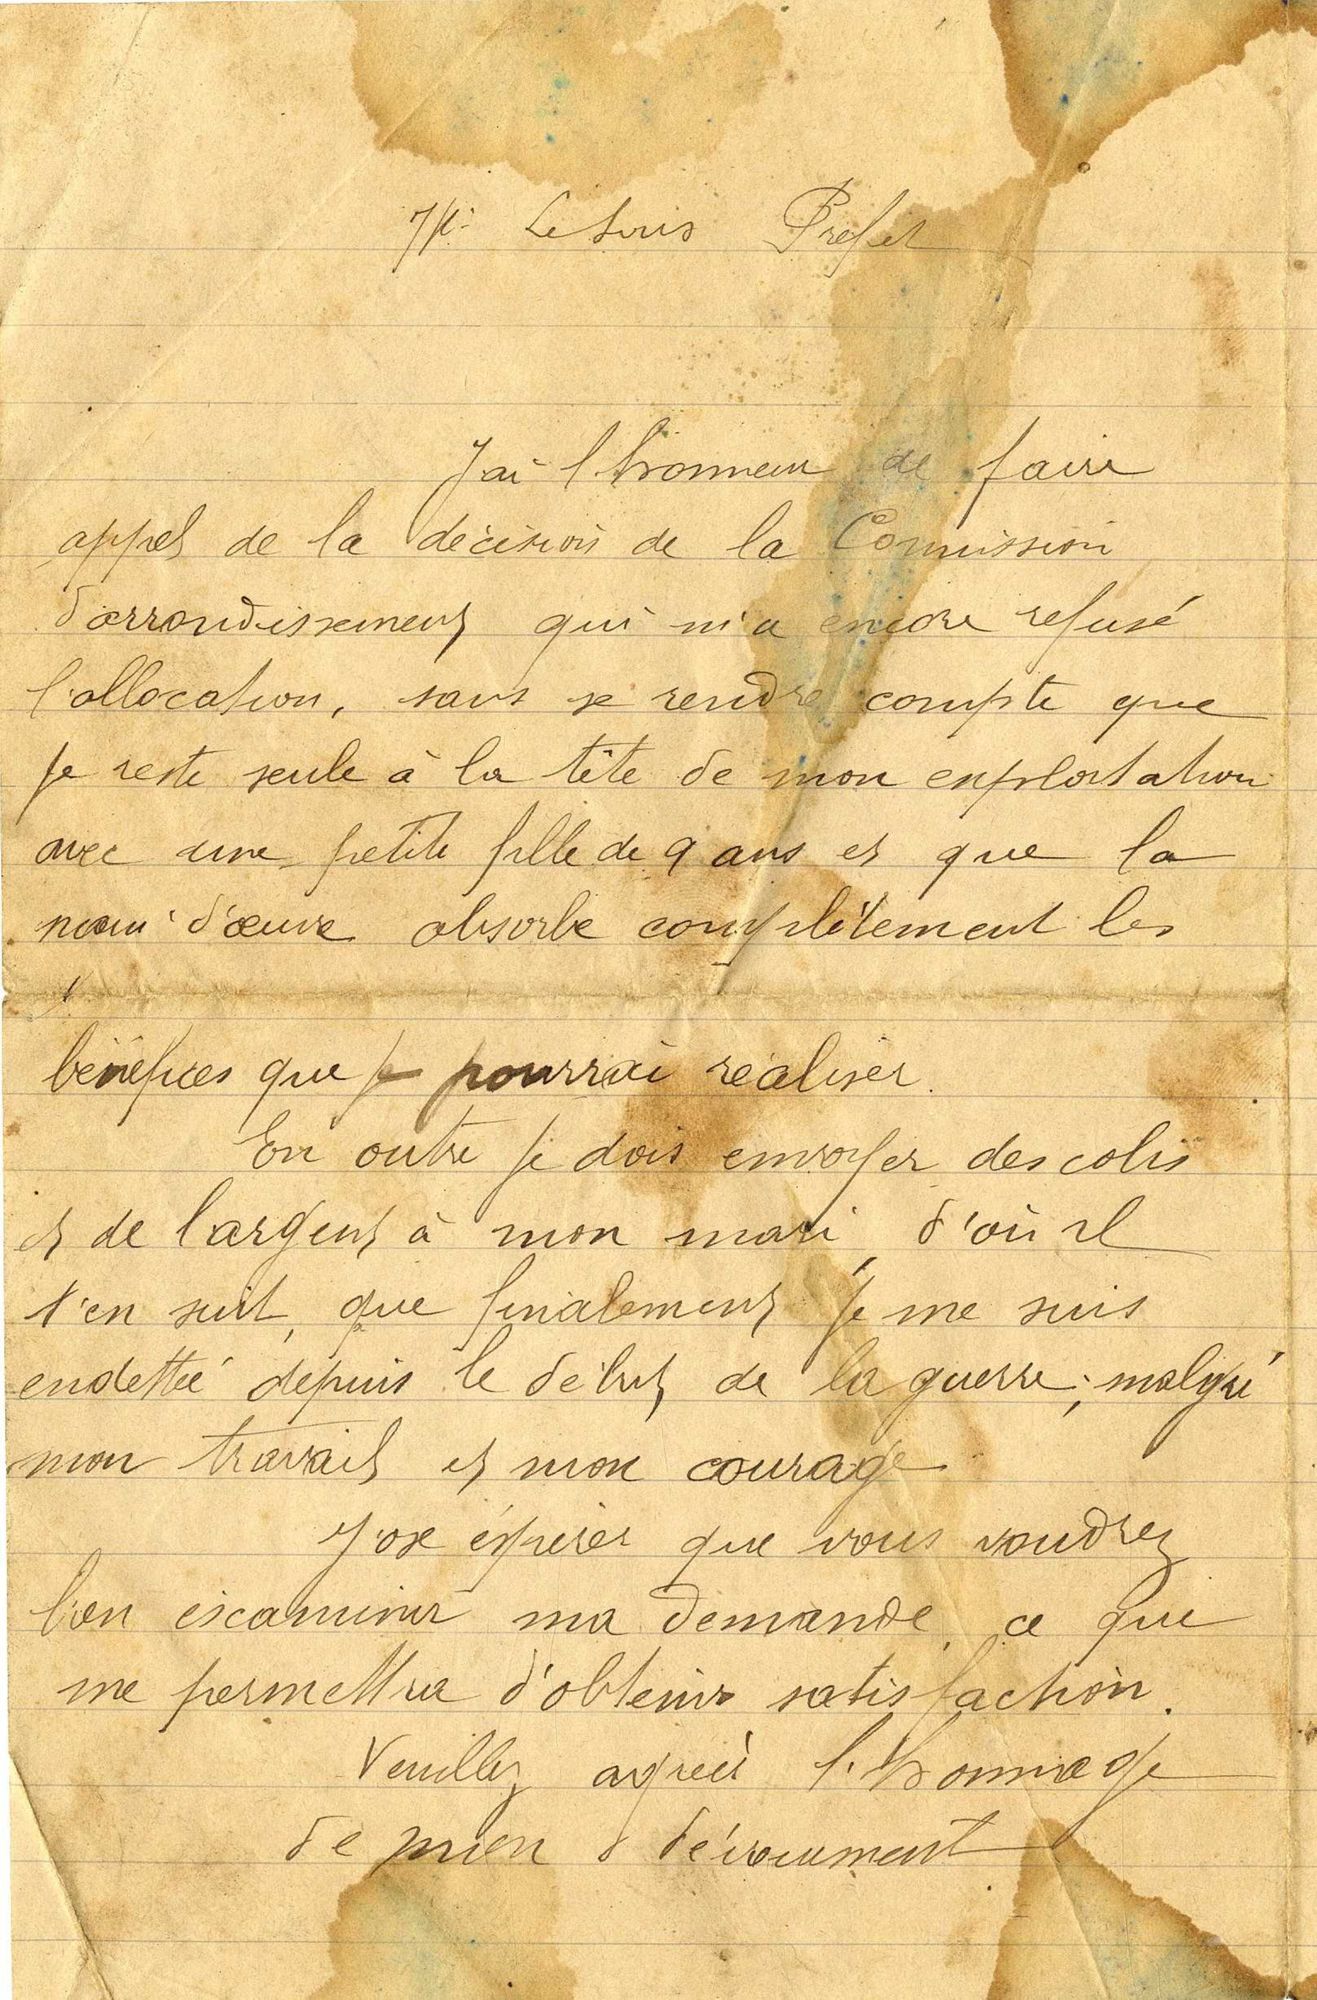 Mr Le Sous Prefet
J'ai l'honneur de faire
appel de la décision de la Commission
d'arrondissement qui m'a encore refusé
l'allocation, sans se rendre compte que
je reste seule à la tête de mon exploitation
avec une petite fille de 9 ans et que la
main d'œuvre absorbe complètement les
bénéfices que je pourrai réaliser.
En outre je dois envoyer des colis
et de l'argent à mon mari, d'où il
s'en suit, que finalement je me suis
endettée depuis le début de la guerre; malgré
mon travail et mon courage
J'ose éspérer que vous voudrez
bien éxaminer ma demande, ce que
me permettra d'obtenir satisfaction.
Veuillez agréer l'hommage
de mon dévouement